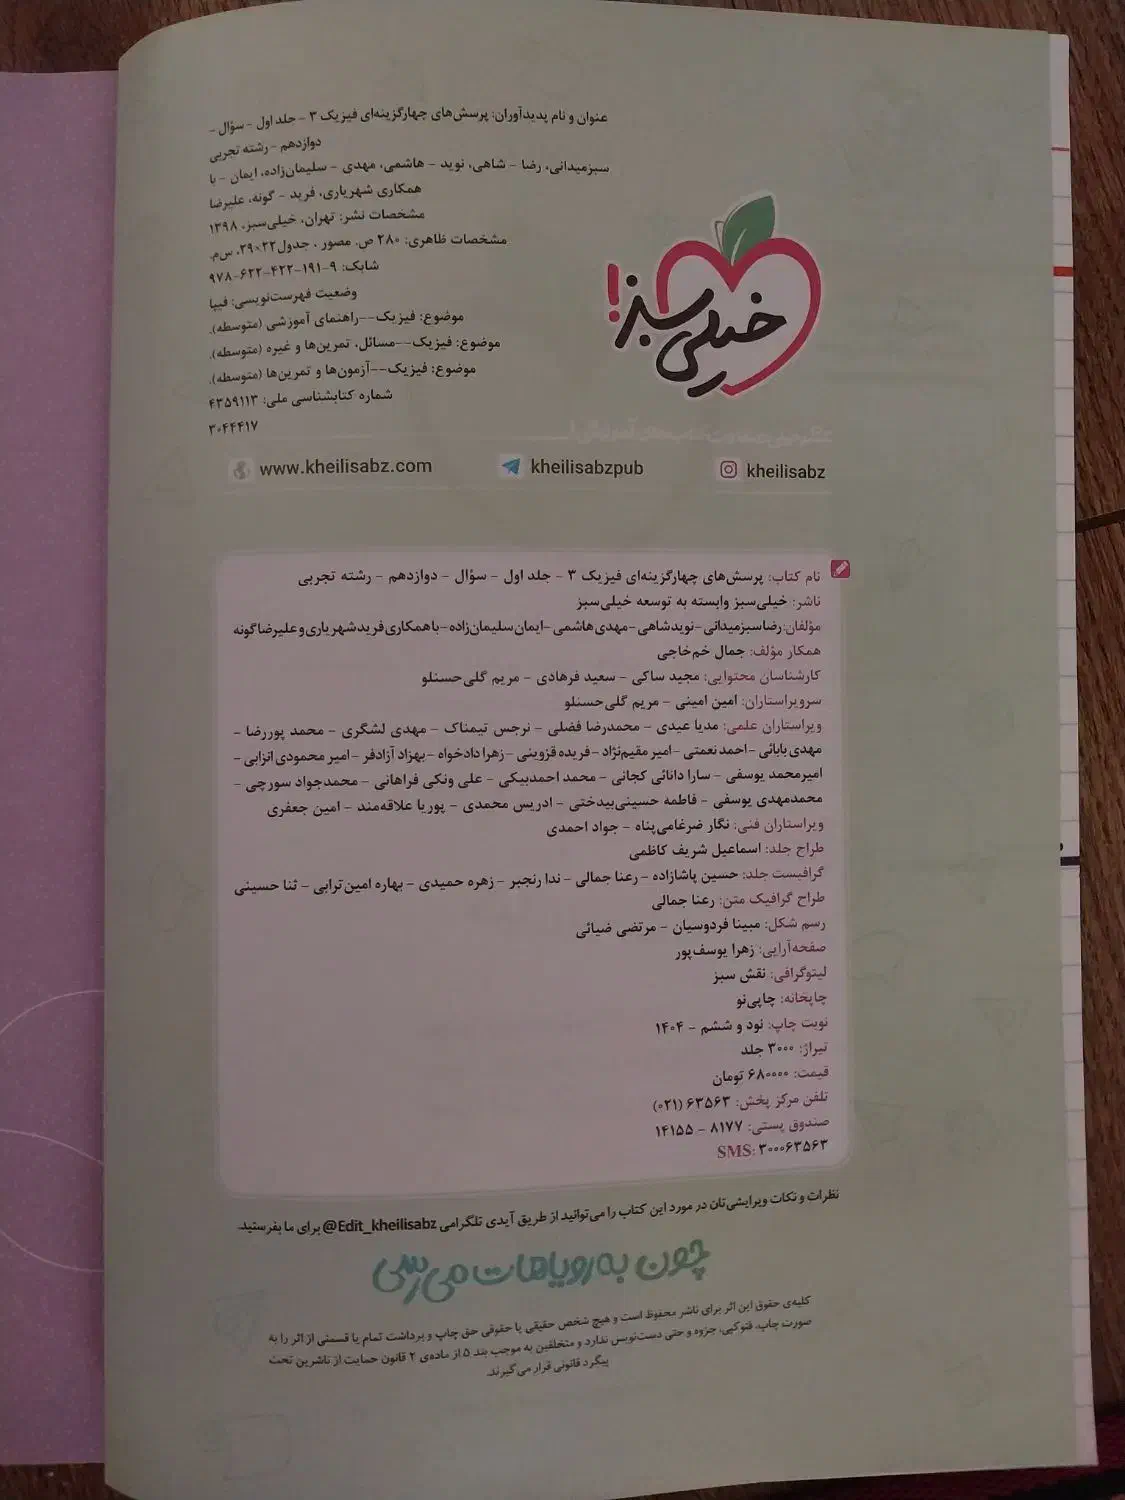 عنوان و نام پدیدآوران: پرسش‌های چهارگزینه‌ای فیزیک ۳ - جلد اول - سؤال -
دوازدهم - رشته تجربی
سبزمیدانی، رضا - شاهی، نوید - هاشمی، مهدی - سلیمان‌زاده، ایمان - با
همکاری شهریاری، فرید - گونه، علیرضا
مشخصات نشر: تهران، خیلی‌سبز، ۱۳۹۸
مشخصات ظاهری: ۲۸۰ ص. مصور . جدول ۲۲×۲۹، س‌م.
شابک: ۹-۱۹۱-۴۲۲-۶۲۲-۹۷۸
وضعیت فهرست‌نویسی: فیپا
موضوع: فیزیک--راهنمای آموزشی (متوسطه).
موضوع: فیزیک--مسائل، تمرین‌ها و غیره (متوسطه).
موضوع: فیزیک--آزمون‌ها و تمرین‌ها (متوسطه).
شماره کتابشناسی ملی: ۴۳۵۹۱۱۳
۳۰۴۴۴۱۷
خیلی سبز!
www.kheilisabz.com kheilisabzpub kheilisabz
نام کتاب: پرسش‌های چهارگزینه‌ای فیزیک ۳ - جلد اول - سؤال - دوازدهم - رشته تجربی
ناشر: خیلی‌سبز وابسته به توسعه خیلی‌سبز
مؤلفان: رضا سبزمیدانی - نوید شاهی - مهدی هاشمی - ایمان سلیمان‌زاده - با همکاری فرید شهریاری و علیرضا گونه
همکار مؤلف: جمال خم‌خاجی
کارشناسان محتوایی: مجید ساکی - سعید فرهادی - مریم گلی‌حسنلو
سرویراستاران: امین امینی - مریم گلی‌حسنلو
ویراستاران علمی: مدیا عیدی - محمدرضا فضلی - نرجس تیمناک - مهدی لشگری - محمد پوررضا -
مهدی بابائی - احمد نعمتی - امیر مقیم‌نژاد - فریده قزوینی - زهرا دادخواه - بهزاد آزادفر - امیر محمودی انزابی -
امیرمحمد یوسفی - سارا دانائی کجانی - محمد احمدبیکی - علی ونکی فراهانی - محمدجواد سورچی -
محمدمهدی یوسفی - فاطمه حسینی‌بیدختی - ادریس محمدی - پوریا علاقه‌مند - امین جعفری
ویراستاران فنی: نگار ضرغامی‌پناه - جواد احمدی
طراح جلد: اسماعیل شریف کاظمی
گرافیست جلد: حسین پاشازاده - رعنا جمالی - ندا رنجبر - زهره حمیدی - بهاره امین‌ترابی - ثنا حسینی
طراح گرافیک متن: رعنا جمالی
رسم شکل: مبینا فردوسیان - مرتضی ضیائی
صفحه‌آرایی: زهرا یوسف‌پور
لیتوگرافی: نقش سبز
چاپخانه: چاپی‌نو
نوبت چاپ: نود و ششم - ۱۴۰۴
تیراژ: ۳۰۰۰ جلد
قیمت: ۶۸۰۰۰۰ تومان
تلفن مرکز پخش: ۶۳۵۶۳ (۰۲۱)
صندوق پستی: ۸۱۷۷ - ۱۴۱۵۵
SMS: ۳۰۰۰۶۳۵۶۳
نظرات و نکات ویرایشی‌تان در مورد این کتاب را می‌توانید از طریق آیدی تلگرامی @Edit_kheilisabz برای ما بفرستید.
چون به رویاهات می‌رسی
کلیه‌ی حقوق این اثر برای ناشر محفوظ است و هیچ شخص حقیقی یا حقوقی حق چاپ و برداشت تمام یا قسمتی از اثر را به
صورت چاپ، فتوکپی، جزوه و حتی دست‌نویس ندارد و متخلفین به موجب بند ۵ از ماده‌ی ۲ قانون حمایت از ناشرین تحت
پیگرد قانونی قرار می‌گیرند.